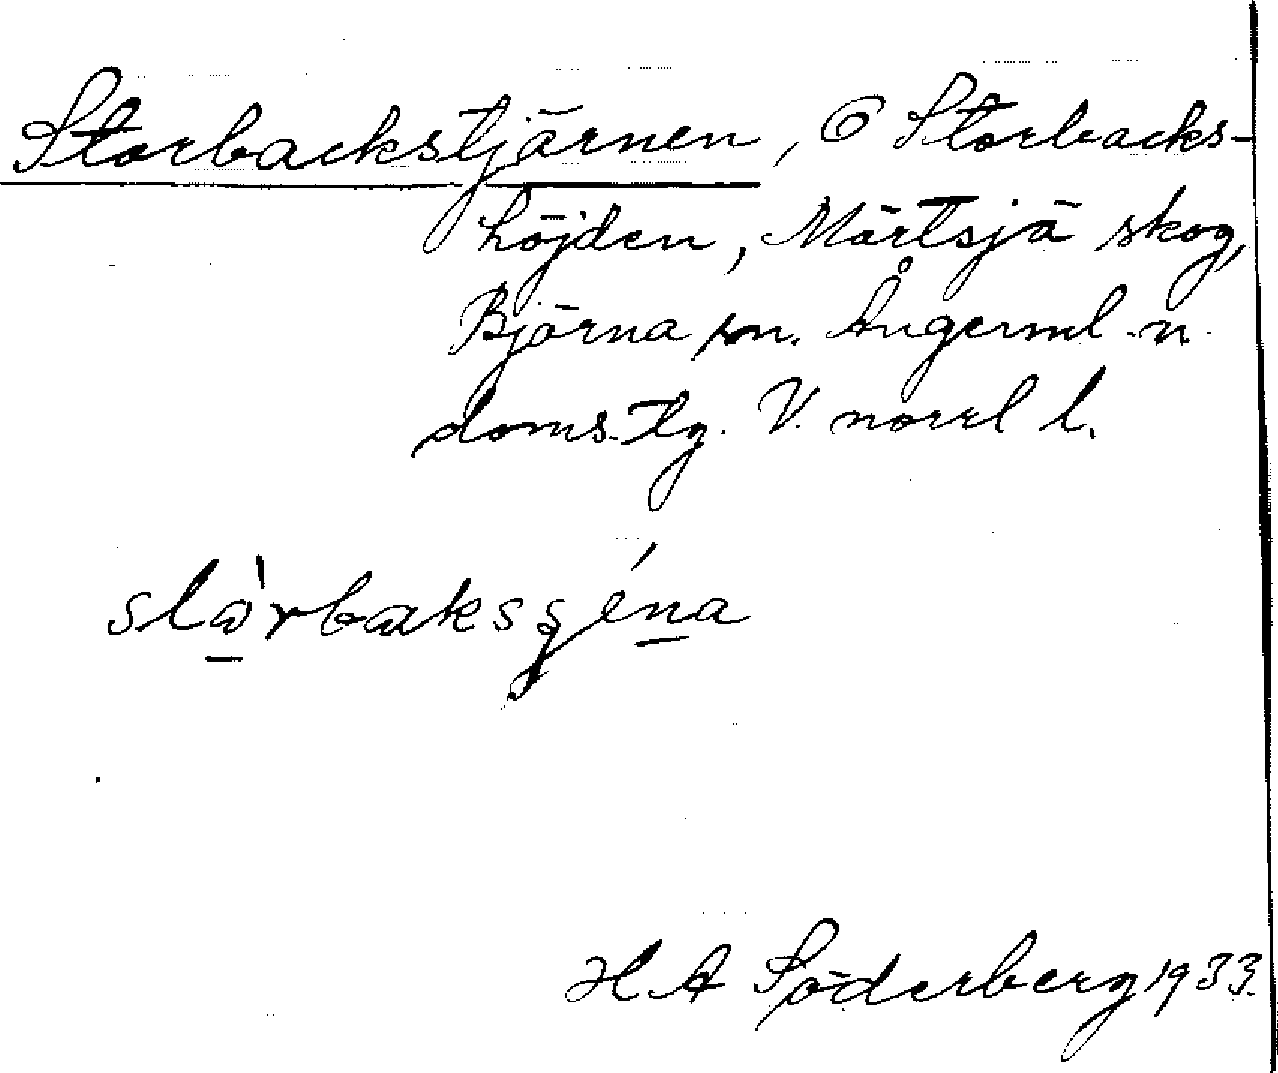 Storbackstjärnen, Ö Storbacks-
höjden, Mörtsjö skog,
Björna sn. Ångerml. n.
doms.tg. V. norrl l.
H A Söderberg 1933.